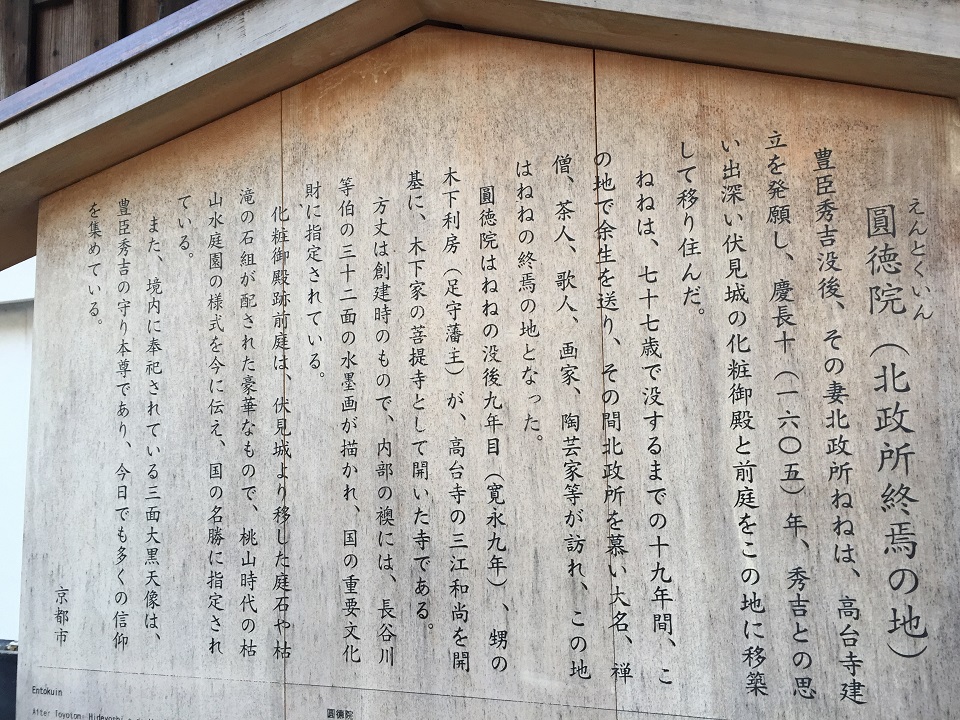 えんとくいん
圓徳院（北政所終焉の地）
豊臣秀吉没後、その妻北政所ねねは、高台寺建
立を発願し、慶長十（一六〇五）年、秀吉との思
い出深い伏見城の化粧御殿と前庭をこの地に移築
して移り住んだ。
ねねは、七十七歳で没するまでの十九年間、こ
の地で余生を送り、その間北政所を慕い大名、禅
僧、茶人、歌人、画家、陶芸家等が訪れ、この地
はねねの終焉の地となった。
圓徳院はねねの没後九年目（寛永九年）、甥の
木下利房（足守藩主）が、高台寺の三江和尚を開
基に、木下家の菩提寺として開いた寺である。
方丈は創建時のもので、内部の襖には、長谷川
等伯の三十二面の水墨画が描かれ、国の重要文化
財に指定されている。
化粧御殿跡前庭は、伏見城より移した庭石や枯
滝の石組が配された豪華なもので、桃山時代の枯
山水庭園の様式を今に伝え、国の名勝に指定され
ている。
また、境内に奉祀されている三面大黒天像は、
豊臣秀吉の守り本尊であり、今日でも多くの信仰
を集めている。
京都市
Entokuin
After Toyotomi Hideyoshi
圓徳院